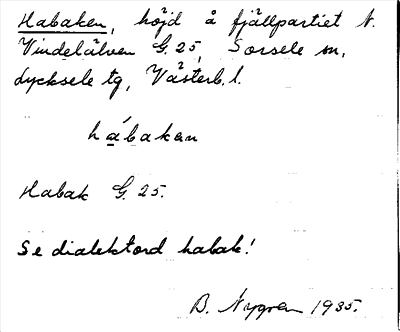 Habaken, höjd å fjällpartiet N.
Vindelälven G. 25, Sorsele sn,
Lycksele tg, Västerb. l.
hábakan
Habak G. 25.
Se dialektord habak!
B. Nygren 1935.